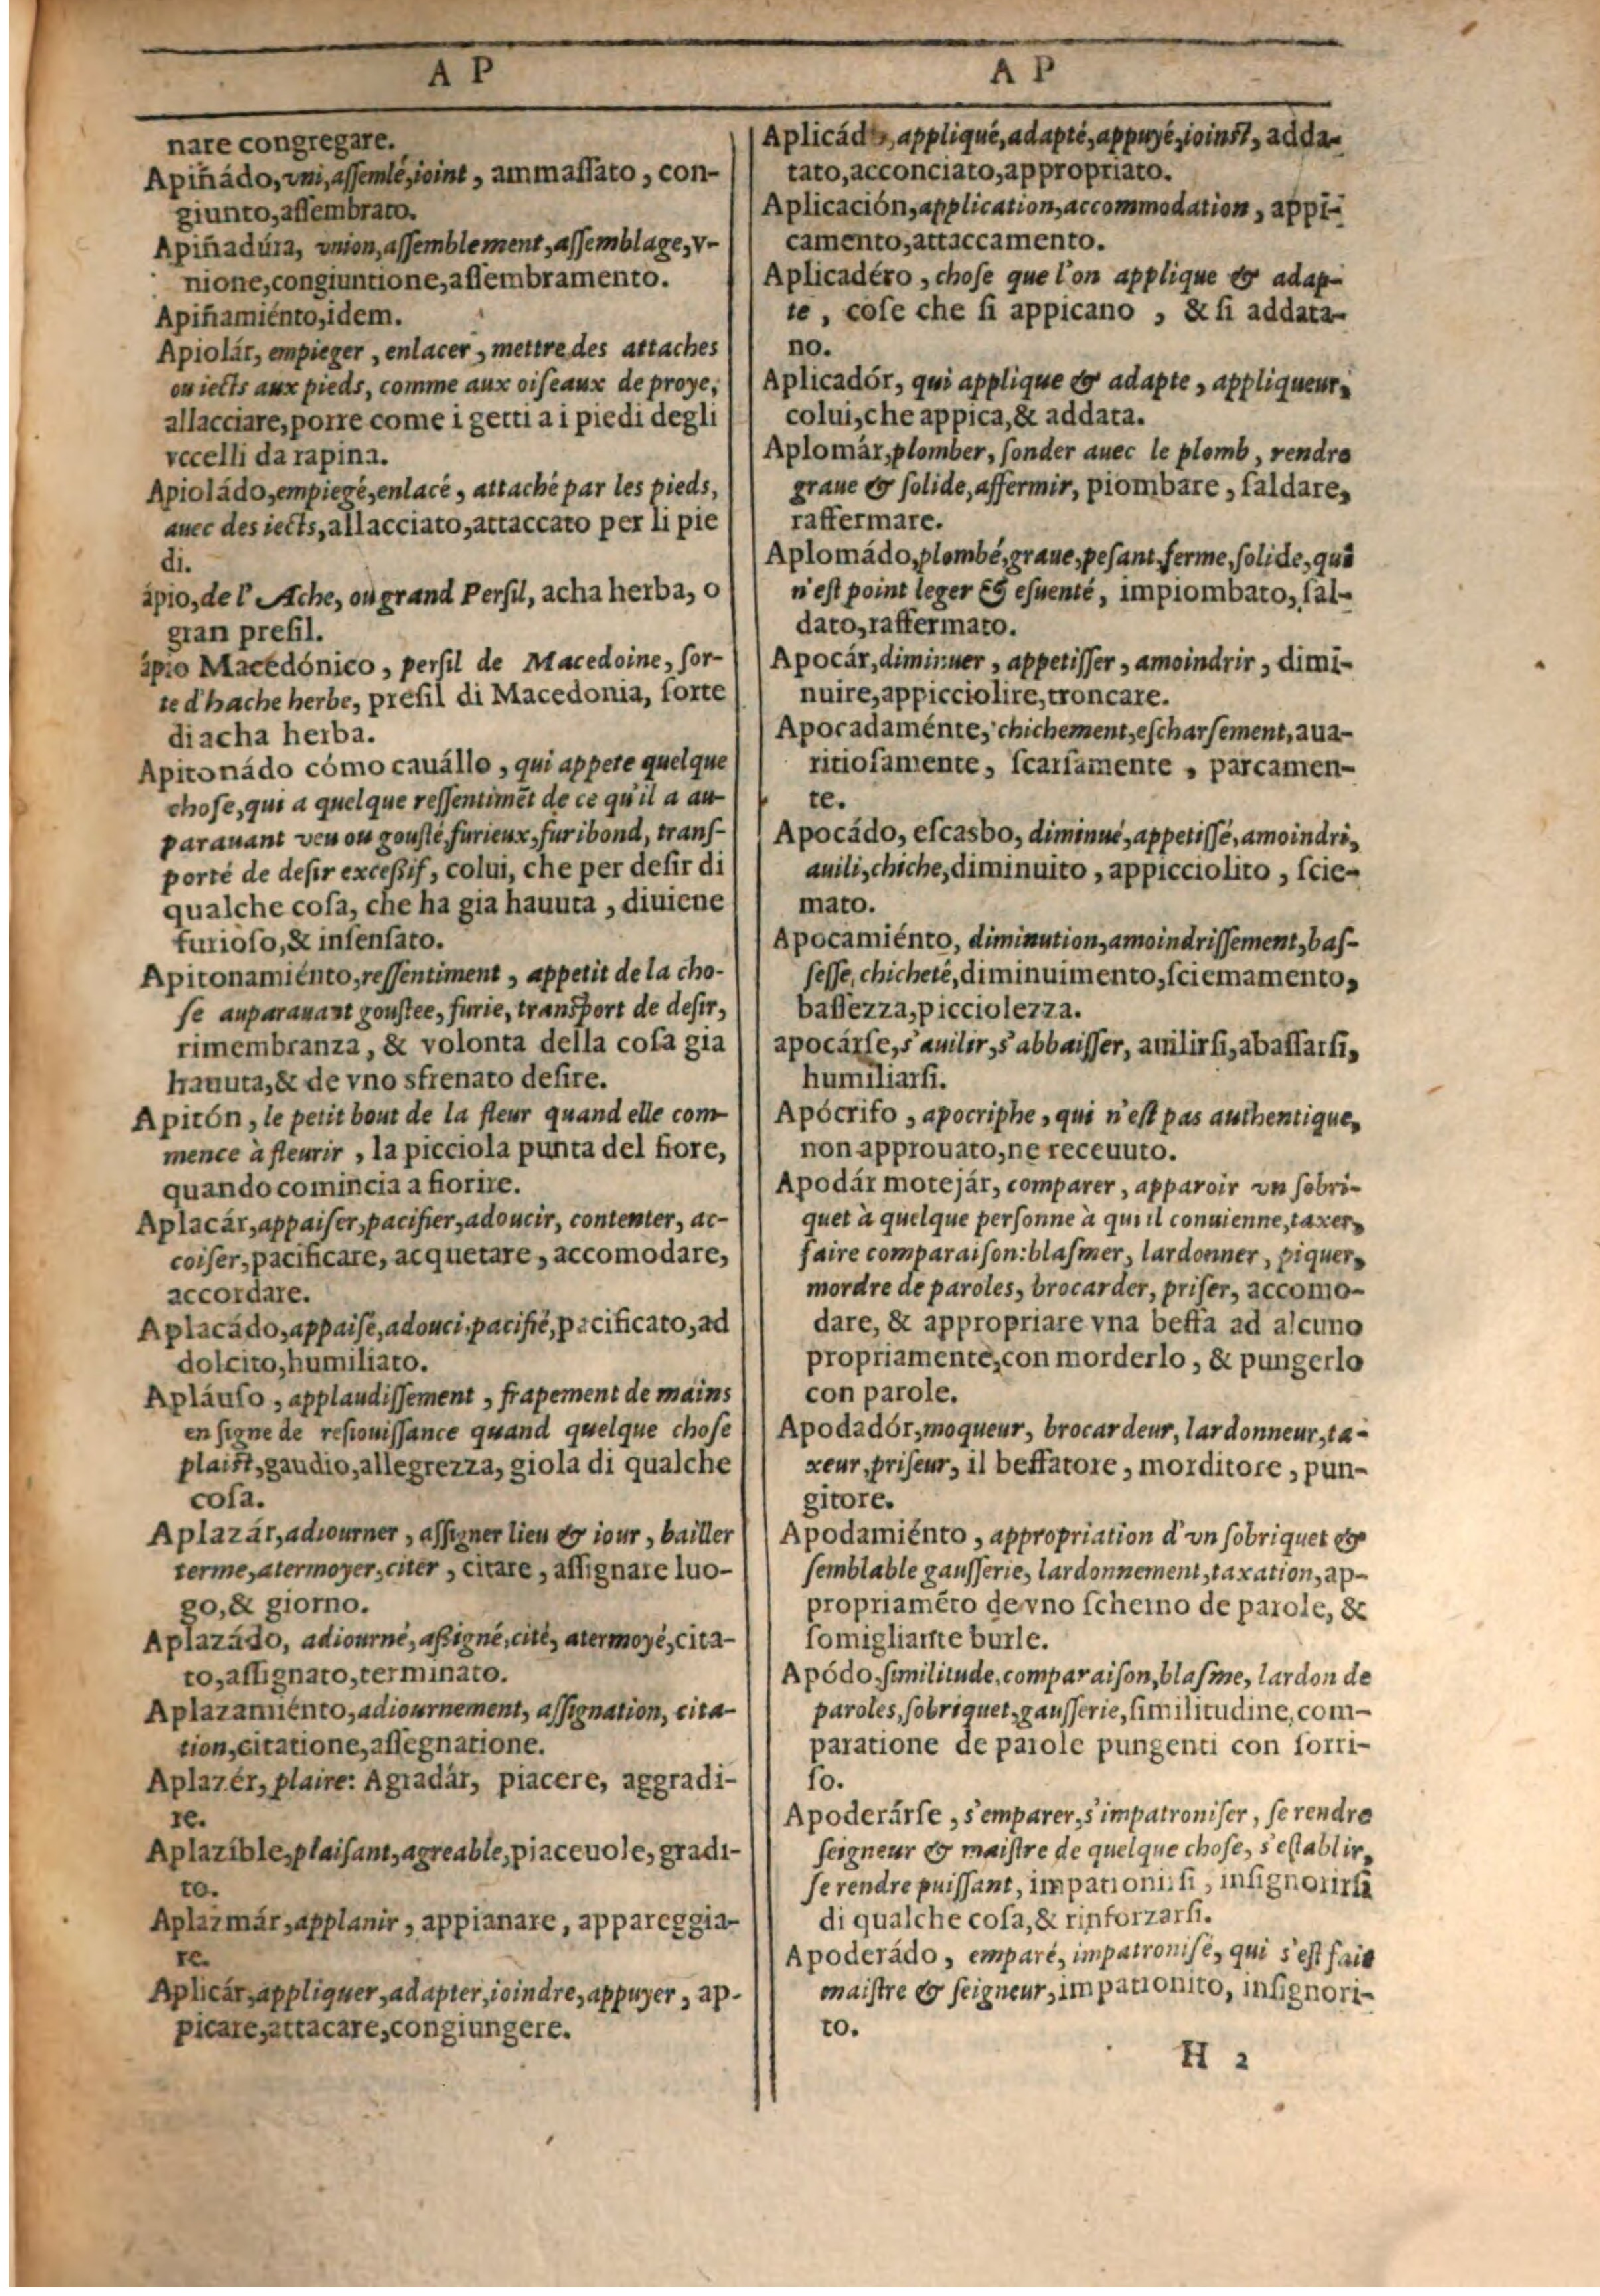 A P
nare congregare.
Apiñádo, vni, aſſemlé, ioint, ammaſſato, con-
giunto, aſſembrato.
Apiñadúra, vnion, aſſemblement, aſſemblage, v-
nione, congiuntione, aſſembramento.
Apiñamiénto, idem.
Apiolár, empieger, enlacer, mettre des attaches
ou iects aux pieds, comme aux oiſeaux de proye,
allacciare, porre come i getti a i piedi degli
vccelli da rapina.
Apioládo, empiegé, enlacé, attaché par les pieds,
auec des iects, allacciato, attaccato per li pie
di.
ápio, de l'Ache, ou grand Perſil, acha herba, o
gran preſil.
ápio Macedónico, perſil de Macedoine, ſor-
te d'hache herbe, preſil di Macedonia, ſorte
di acha herba.
Apitonádo cómo cauállo, qui appete quelque
choſe, qui a quelque reſſentimẽt de ce qu'il a au-
parauant veu ou gouſté, furieux, furibond, tranſ-
porté de deſir exceſſif, colui, che per deſir di
qualche coſa, che ha gia hauuta, diuiene
furioſo, & inſenſato.
Apitonamiénto, reſſentiment, appetit de la cho-
ſe auparauant gouſtee, furie, tranſport de deſir,
rimembranza, & volonta della coſa gia
hauuta, & de vno sfrenato deſire.
Apitón, le petit bout de la fleur quand elle com-
mence à fleurir, la picciola punta del fiore,
quando comincia a fiorire.
Aplacár, appaiſer, pacifier, adoucir, contenter, ac-
coiſer, pacificare, acquetare, accomodare,
accordare.
Aplacádo, appaiſé, adouci, pacifié, pacificato, ad
dolcito, humiliato.
Apláuſo, applaudiſſement, frapement de mains
en ſigne de reſiouiſſance quand quelque choſe
plaiſt, gaudio, allegrezza, giola di qualche
coſa.
Aplazár, adiourner, aſſigner lieu & iour, bailler
terme, atermoyer, citer, citare, aſſignare luo-
go, & giorno.
Aplazádo, adiourné, aſſigné, cité, atermoyé, cita-
to, aſſignato, terminato.
Aplazamiénto, adiournement, aſſignation, cita-
tion, citatione, aſſegnatione.
Aplazér, plaire: Agradár, piacere, aggradi-
re.
Aplazíble, plaiſant, agreable, piaceuole, gradi-
to.
Aplazmár, applanir, appianare, appareggia-
re.
Aplicár, appliquer, adapter, ioindre, appuyer, ap-
picare, attacare, congiungere.
A P
Aplicádo, appliqué, adapté, appuyé, ioinſt, adda-
tato, acconciato, appropriato.
Aplicación, application, accommodation, appi-
camento, attaccamento.
Aplicadéro, choſe que l'on applique & adap-
te, coſe che ſi appicano, & ſi addata-
no.
Aplicadór, qui applique & adapte, appliqueur,
colui, che appica, & addata.
Aplomár, plomber, ſonder auec le plomb, rendre
graue & ſolide, affermir, piombare, ſaldare,
raffermare.
Aplomádo, plombé, graue, peſant, ferme, ſolide, qui
n'eſt point leger & eſuenté, impiombato, ſal-
dato, raffermato.
Apocár, diminuer, appetiſſer, amoindrir, dimi-
nuire, appicciolire, troncare.
Apocadaménte, chichement, eſcharſement, aua-
ritioſamente, ſcarſamente, parcamen-
te.
Apocádo, eſcasbo, diminué, appetiſſé, amoindri,
auili, chiche, diminuito, appicciolito, ſcie-
mato.
Apocamiénto, diminution, amoindriſſement, baſ-
ſeſſe, chicheté, diminuimento, ſciemamento,
baſſezza, picciolezza.
apocárſe, s'auilir, s'abbaiſſer, auilirſi, abaſſarſi,
humiliarſi.
Apócrifo, apocriphe, qui n'eſt pas authentique,
non approuato, ne receuuto.
Apodár motejár, comparer, apparoir vn ſobri-
quet à quelque perſonne à qui il conuienne, taxer,
faire comparaiſon: blaſmer, lardonner, piquer,
mordre de paroles, brocarder, priſer, accomo-
dare, & appropriare vna beffa ad alcuno
propriamente, con morderlo, & pungerlo
con parole.
Apodadór, moqueur, brocardeur, lardonneur, ta-
xeur, priſeur, il beffatore, morditore, pun-
gitore.
Apodamiénto, appropriation d'vn ſobriquet &
ſemblable gauſſerie, lardonnement, taxation, ap-
propriamẽto de vno ſcherno de parole, &
ſomigliante burle.
Apódo, ſimilitude, comparaiſon, blaſme, lardon de
paroles, ſobriquet, gauſſerie, ſimilitudine, com-
paratione de parole pungenti con ſorri-
ſo.
Apoderárſe, s'emparer, s'impatroniſer, ſe rendre
ſeigneur & maiſtre de quelque choſe, s'eſtablir,
ſe rendre puiſſant, impationirſi, inſignorirſi
di qualche coſa, & rinforzarſi.
Apoderádo, emparé, impatroniſé, qui s'eſt fait
maiſtre & ſeigneur, impationito, inſignori-
to.
H 2